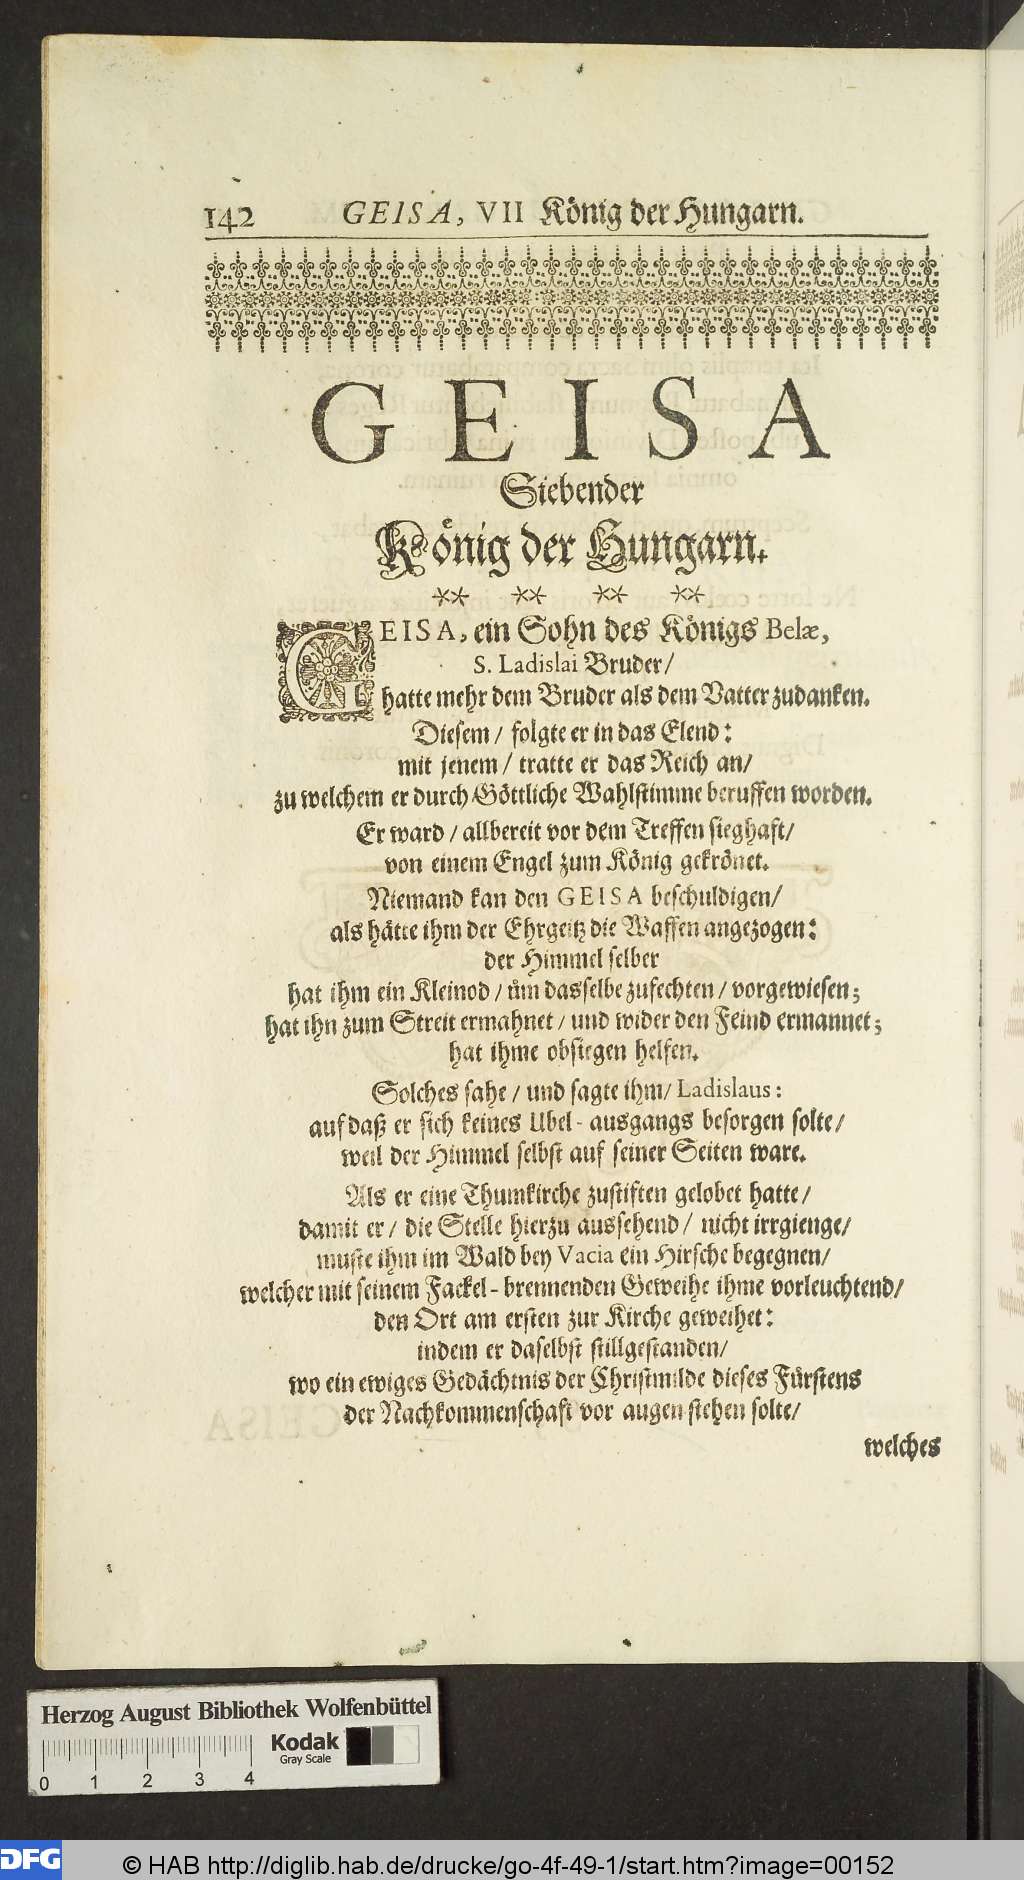 142 GEISA, VII König der Hungarn.
GEISA
Siebender
König der Hungarn.
** ** ** **
GEISA, ein Sohn des Königs Belæ,
S. Ladislai Bruder/
hatte mehr dem Bruder als dem Vatter zudanken.
Diesem / folgte er in das Elend:
mit jenem / tratte er das Reich an/
zu welchem er durch Göttliche Wahlstimme beruffen worden.
Er ward / allbereit vor dem Treffen sieghaft/
von einem Engel zum König gekrönet.
Niemand kan den GEISA beschuldigen/
als hätte ihm der Ehrgeitz die Waffen angezogen:
der Himmel selber
hat ihm ein Kleinod / üm dasselbe zufechten / vorgewiesen;
hat ihn zum Streit ermahnet / und wider den Feind ermannet;
hat ihme obsiegen helfen.
Solches sahe / und sagte ihm/ Ladislaus:
auf daß er sich keines Ubel-ausgangs besorgen solte/
weil der Himmel selbst auf seiner Seiten ware.
Als er eine Thumkirche zustiften gelobet hatte/
damit er / die Stelle hierzu aussehend / nicht irrgienge/
muste ihm im Wald bey Vacia ein Hirsche begegnen/
welcher mit seinem Fackel-brennenden Geweihe ihme vorleuchtend/
den Ort am ersten zur Kirche geweihet:
indem er daselbst stillgestanden/
wo ein ewiges Gedächtnis der Christmilde dieses Fürstens
der Nachkommenschaft vor augen stehen solte/
welches
Herzog August Bibliothek Wolfenbüttel
Kodak
Gray Scale
0 1 2 3 4
DFG
© HAB http://diglib.hab.de/drucke/go-4f-49-1/start.htm?image=00152